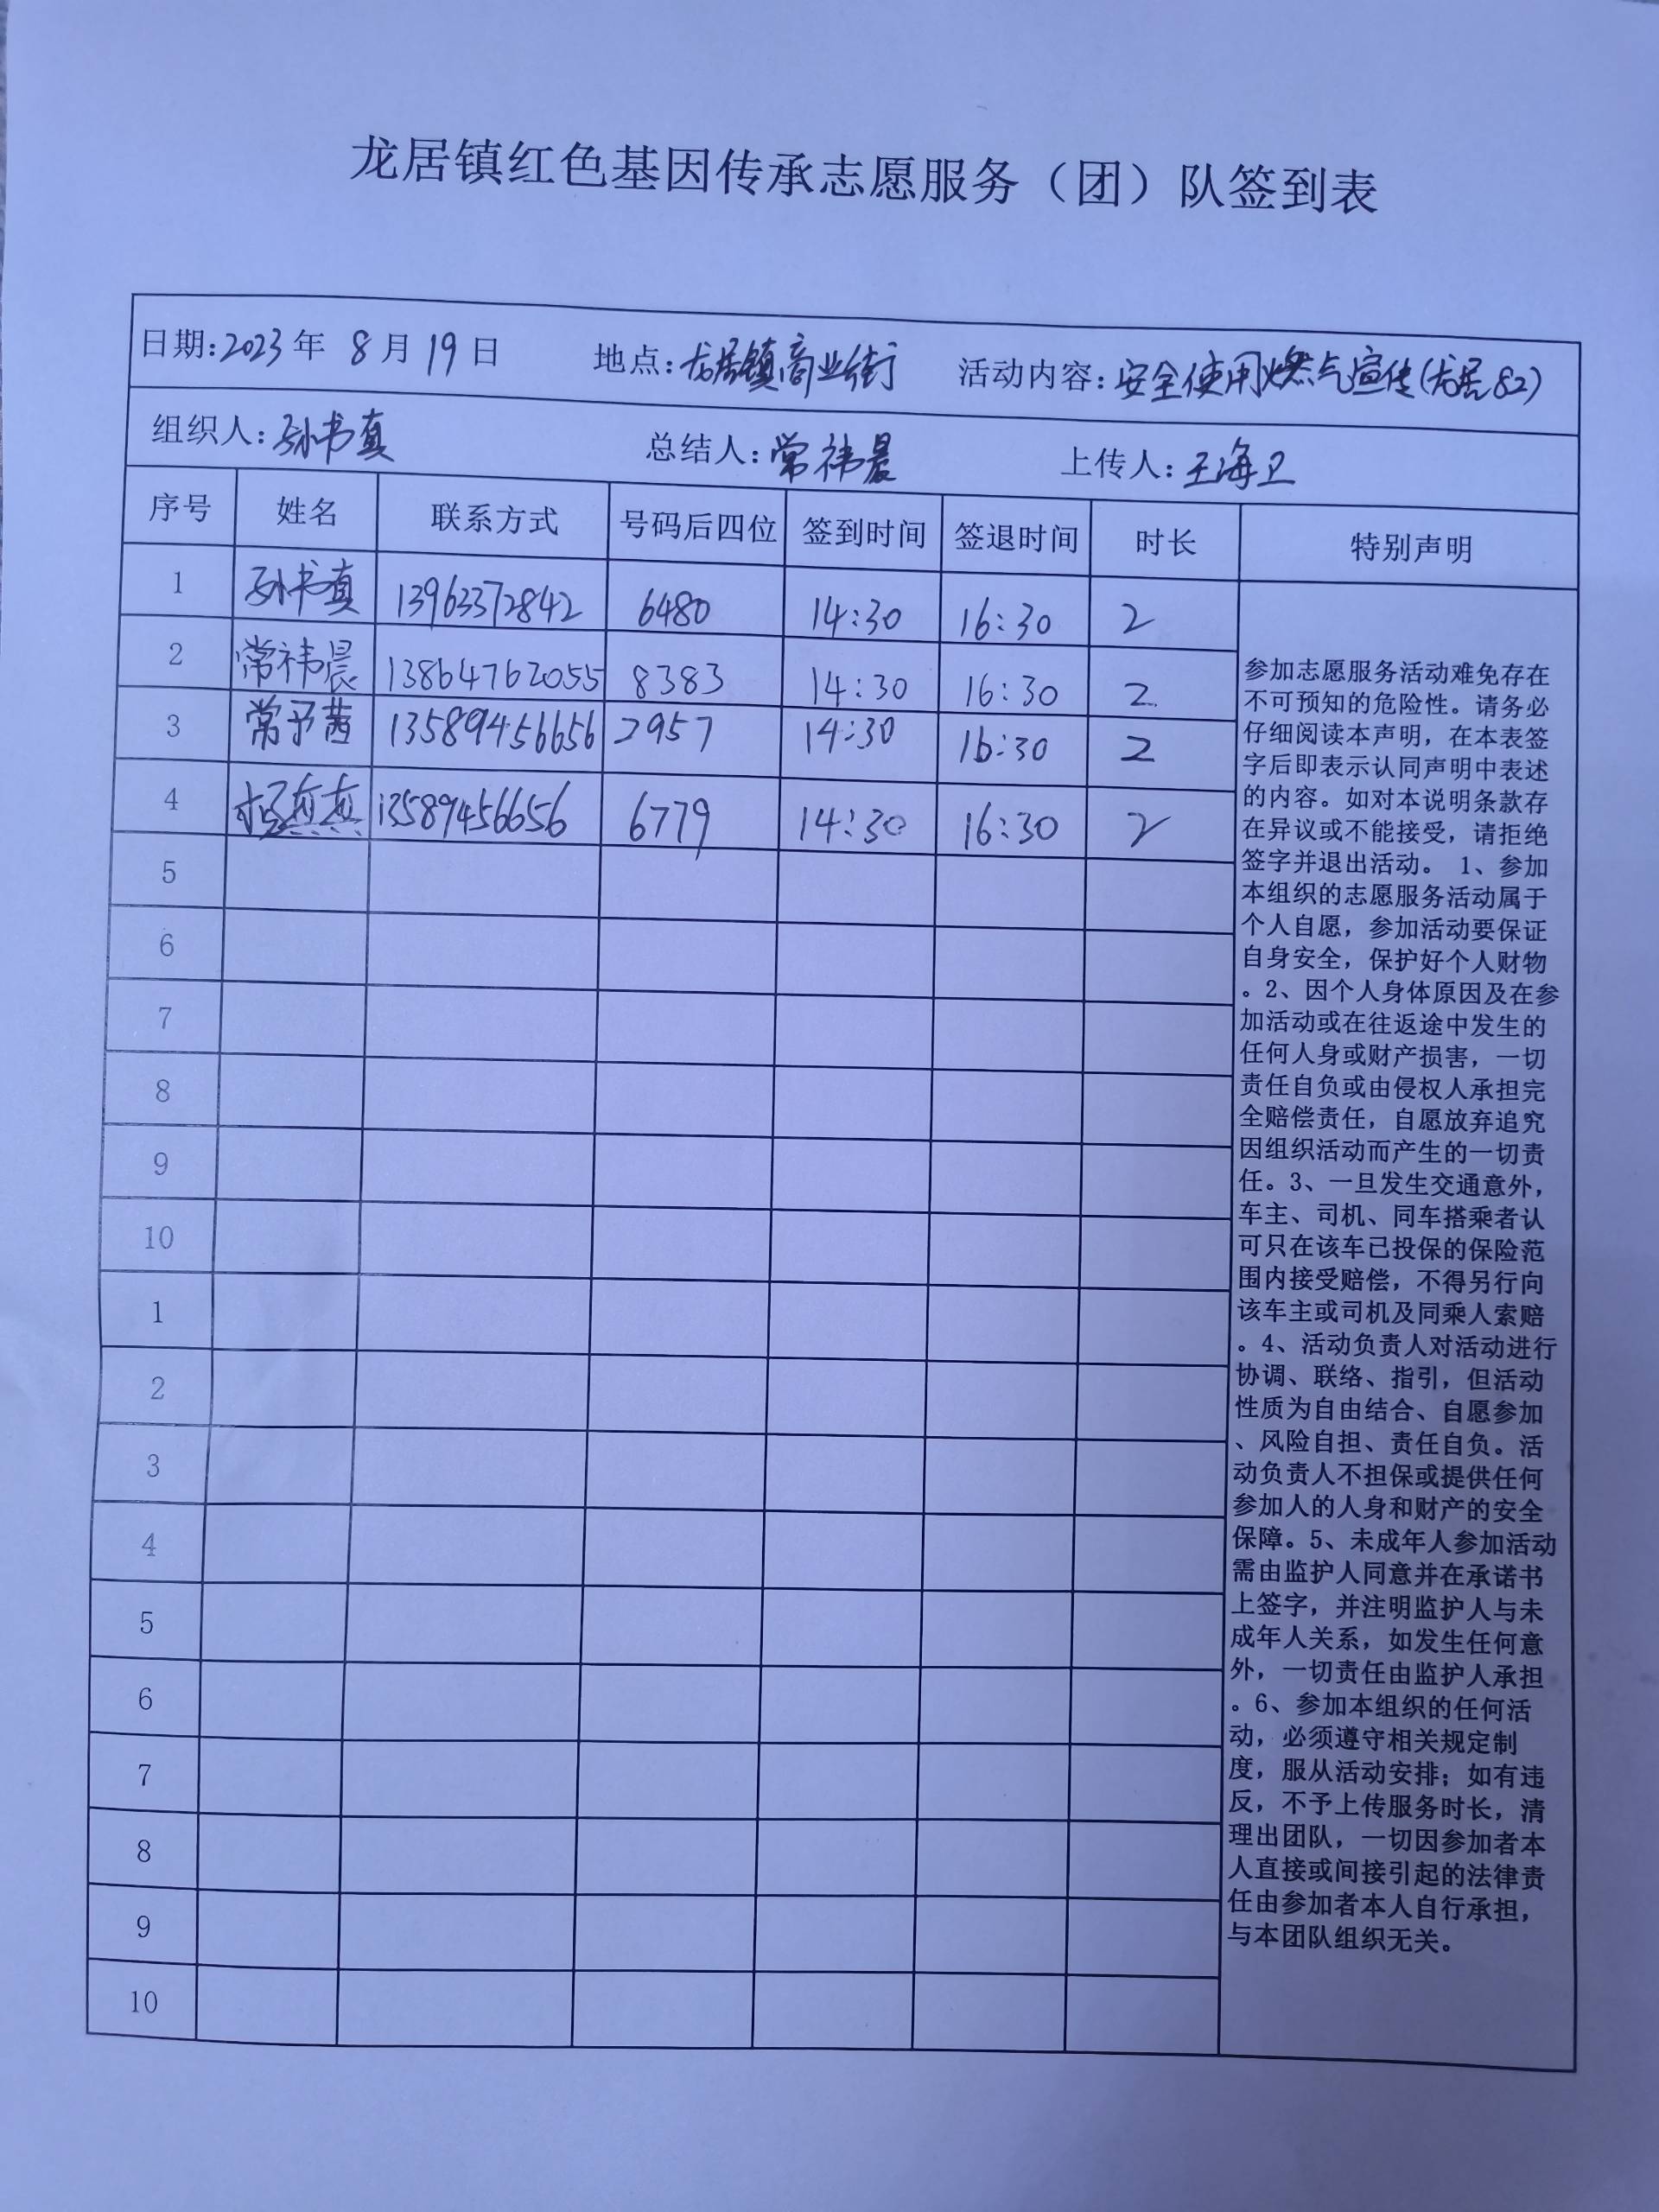 龙居镇红色基因传承志愿服务（团）队签到表
日期:2023年 8月19日 地点:龙居镇商业街 活动内容:安全使用燃气宣传(龙居82)
组织人:孙书真 总结人:常祎晨 上传人:王海卫
序号 姓名 联系方式 号码后四位 签到时间 签退时间 时长 特别声明
1 孙书真 13963372842 6480 14:30 16:30 2
2 常祎晨 13864762055 8383 14:30 16:30 2
3 常予茜 13589456656 2957 14:30 16:30 2
4 13589456656 6779 14:30 16:30 2
5
6
7
8
9
10
1
2
3
4
5
6
7
8
9
10
参加志愿服务活动难免存在
不可预知的危险性。请务必
仔细阅读本声明，在本表签
字后即表示认同声明中表述
的内容。如对本说明条款存
在异议或不能接受，请拒绝
签字并退出活动。 1、参加
本组织的志愿服务活动属于
个人自愿，参加活动要保证
自身安全，保护好个人财物
。2、因个人身体原因及在参
加活动或在往返途中发生的
任何人身或财产损害，一切
责任自负或由侵权人承担完
全赔偿责任，自愿放弃追究
因组织活动而产生的一切责
任。3、一旦发生交通意外，
车主、司机、同车搭乘者认
可只在该车已投保的保险范
围内接受赔偿，不得另行向
该车主或司机及同乘人索赔
。4、活动负责人对活动进行
协调、联络、指引，但活动
性质为自由结合、自愿参加
、风险自担、责任自负。活
动负责人不担保或提供任何
参加人的人身和财产的安全
保障。5、未成年人参加活动
需由监护人同意并在承诺书
上签字，并注明监护人与未
成年人关系，如发生任何意
外，一切责任由监护人承担
。6、参加本组织的任何活
动，必须遵守相关规定制
度，服从活动安排；如有违
反，不予上传服务时长，清
理出团队，一切因参加者本
人直接或间接引起的法律责
任由参加者本人自行承担，
与本团队组织无关。